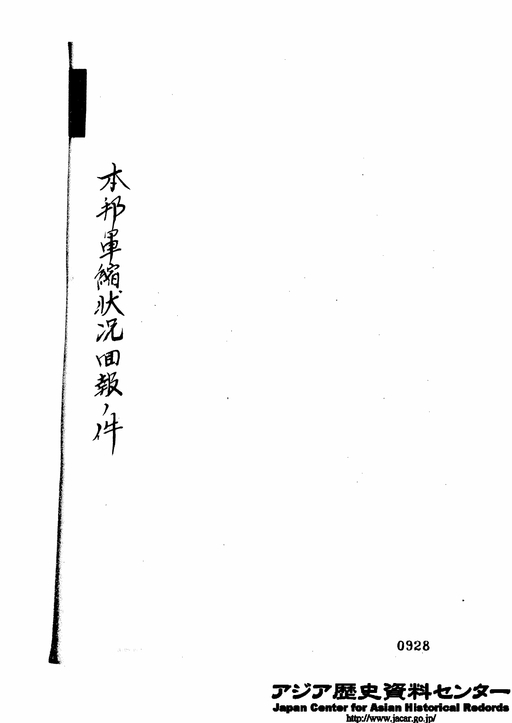 本邦軍縮状况回報ノ件
0928
アジア歴史資料センター
Japan Center for Asian Historical Redords
http://www.jacar.go.jp/